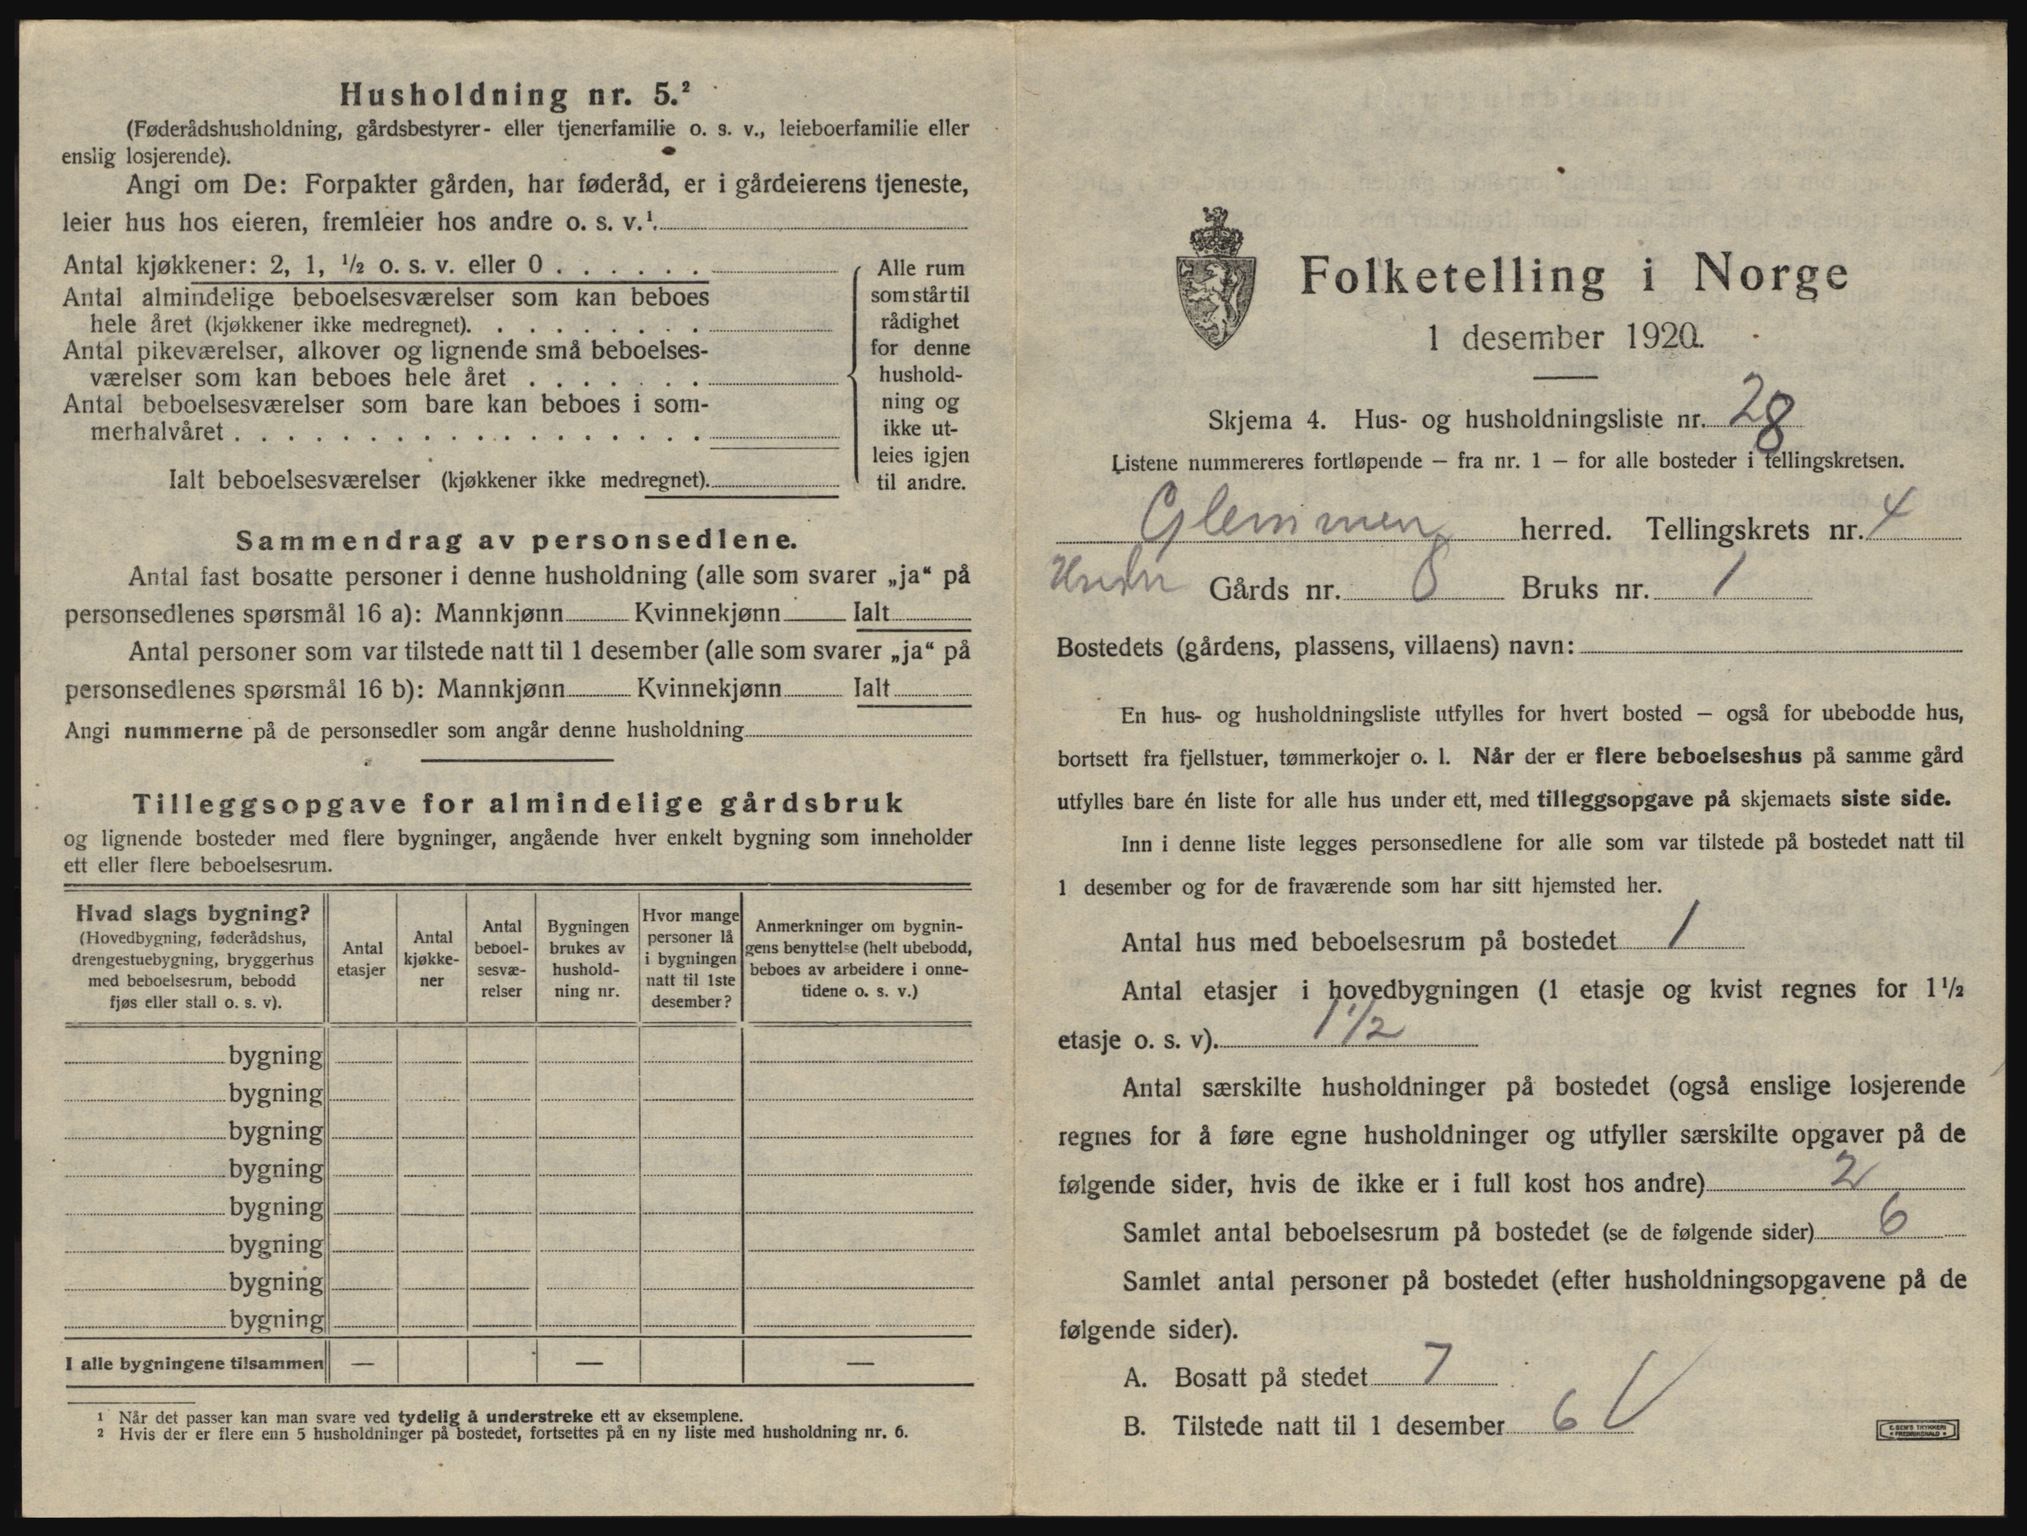 Husholdning nr. 5.²
(Føderådshusholdning, gårdsbestyrer- eller tjenerfamilie o. s. v., leieboerfamilie eller
enslig losjerende).
Angi om De: Forpakter gården, har føderåd, er i gårdeierens tjeneste,
leier hus hos eieren, fremleier hos andre o. s. v.¹.
Antal kjøkkener: 2, 1, ½ o. s. v. eller 0 . . . . . .
Antal almindelige beboelsesværelser som kan beboes
hele året (kjøkkener ikke medregnet). . . . . . . . .
Antal pikeværelser, alkover og lignende små beboelses-
værelser som kan beboes hele året . . . . . . .
Antal beboelsesværelser som bare kan beboes i som-
merhalvåret . . . . . . . . . . . . . . . . . .
Ialt beboelsesværelser (kjøkkener ikke medregnet).
Alle rum
som står til
rådighet
for denne
hushold-
ning og
ikke ut-
leies igjen
til andre.
Sammendrag av personsedlene.
Antal fast bosatte personer i denne husholdning (alle som svarer „ja“ på
personsedlenes spørsmål 16 a): Mannkjønn Kvinnekjønn Ialt
Antal personer som var tilstede natt til 1 desember (alle som svarer „ja“ på
personsedlenes spørsmål 16 b): Mannkjønn Kvinnekjønn Ialt
Angi nummerne på de personsedler som angår denne husholdning
Tilleggsopgave for almindelige gårdsbruk
og lignende bosteder med flere bygninger, angående hver enkelt bygning som inneholder
ett eller flere beboelsesrum.
Hvad slags bygning?
(Hovedbygning, føderådshus,
drengestuebygning, bryggerhus
med beboelsesrum, bebodd
fjøs eller stall o. s. v).
Antal
etasjer
Antal
kjøkke-
ner
Antal
beboel-
sesvæ-
relser
Bygningen
brukes av
hushold-
ning nr.
Hvor mange
personer lå
i bygningen
natt til 1ste
desember?
Anmerkninger om bygnin-
gens benyttelse (helt ubebodd,
beboes av arbeidere i onne-
tidene o. s. v.)
bygning
bygning
bygning
bygning
bygning
bygning
bygning
bygning
I alle bygningene tilsammen — — —
¹ Når det passer kan man svare ved tydelig å understreke ett av eksemplene.
² Hvis der er flere enn 5 husholdninger på bostedet, fortsettes på en ny liste med husholdning nr. 6.
Folketelling i Norge
1 desember 1920.
Skjema 4. Hus- og husholdningsliste nr. 28
Listene nummereres fortløpende — fra nr. 1 — for alle bosteder i tellingskretsen.
Glemmen herred. Tellingskrets nr. 4
Gårds nr. 8 Bruks nr. 1
Bostedets (gårdens, plassens, villaens) navn:
En hus- og husholdningsliste utfylles for hvert bosted — også for ubebodde hus,
bortsett fra fjellstuer, tømmerkojer o. l. Når der er flere beboelseshus på samme gård
utfylles bare én liste for alle hus under ett, med tilleggsopgave på skjemaets siste side.
Inn i denne liste legges personsedlene for alle som var tilstede på bostedet natt til
1 desember og for de fraværende som har sitt hjemsted her.
Antal hus med beboelsesrum på bostedet 1
Antal etasjer i hovedbygningen (1 etasje og kvist regnes for 1½
etasje o. s. v). 1½
Antal særskilte husholdninger på bostedet (også enslige losjerende
regnes for å føre egne husholdninger og utfyller særskilte opgaver på de
følgende sider, hvis de ikke er i full kost hos andre) 2
Samlet antal beboelsesrum på bostedet (se de følgende sider) 6
Samlet antal personer på bostedet (efter husholdningsopgavene på de
følgende sider).
A. Bosatt på stedet 7
B. Tilstede natt til 1 desember 6